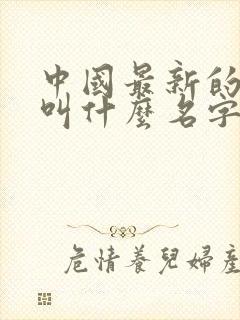 中國最新的
叫什麼名字
危情養兒婦產